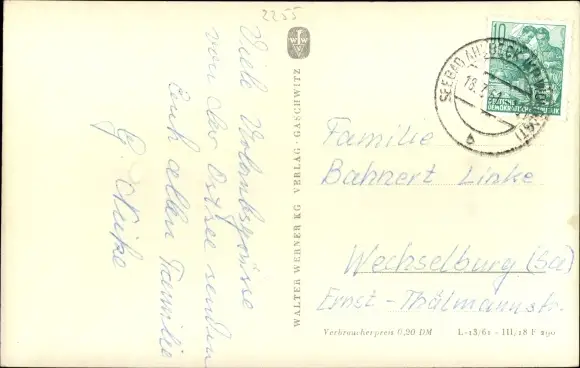 2255
Viele Urlaubsgrüsse
von der Ostsee senden
Euch allen Familie
G. Nuke
WALTER WERNER KG VERLAG · GASCHWITZ
10
DEUTSCHE
DEMOKRATISCHE REPUBLIK
SEEBAD AHLBECK
18.7.61
b
Familie
Bahnert Linke
Wechselburg (Sa)
Ernst-Thälmannstr.
Verbraucherpreis 0,20 DM L-13/61 - III/18 F 290